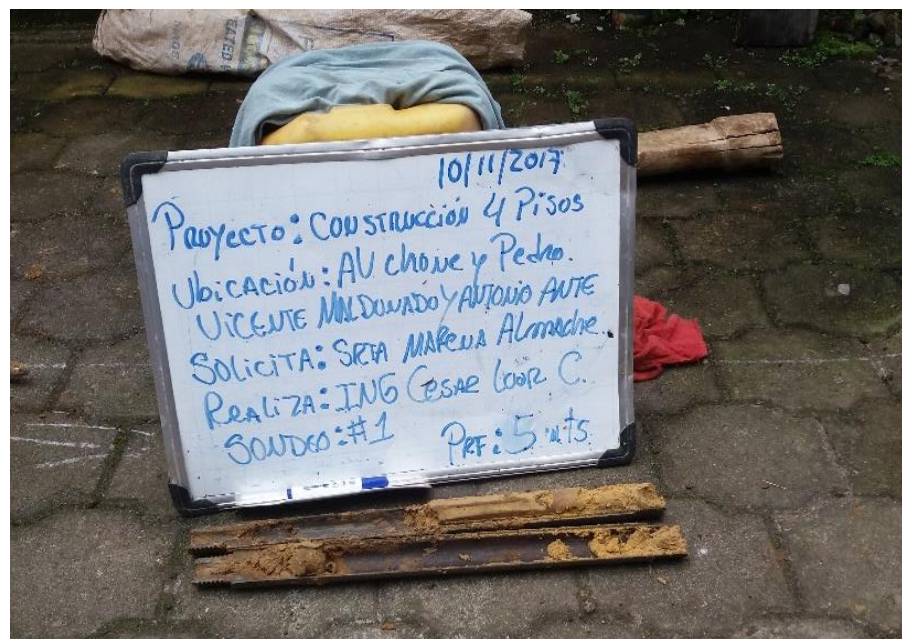 10/11/2017
Proyecto: Construcción 4 Pisos
Ubicación: AV Chone y Pedro.
Vicente Maldonado y Antonio Ante
Solicita: Srta Marena Almache
Realiza: ING Cesar Loor C.
Sondeo: #1 Prf: 5 mts